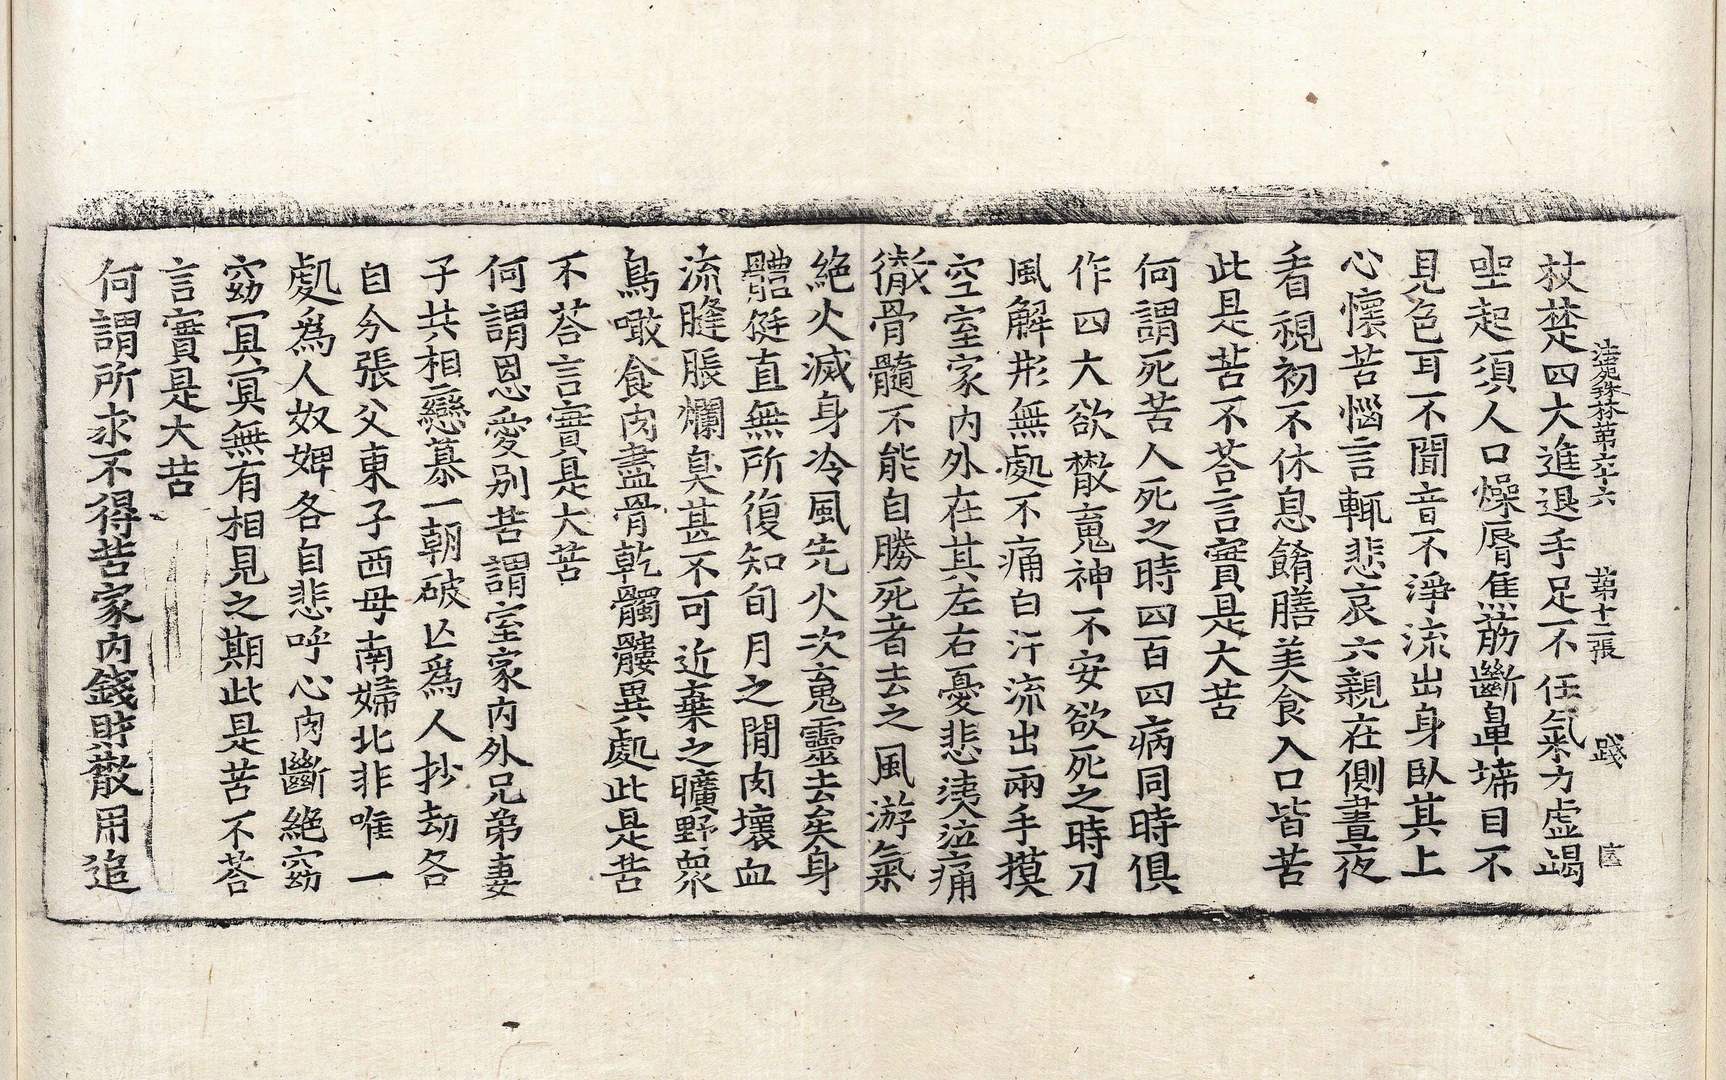 法苑珠林第六十六 第十二張 踐
杖楚四大進退手足不任氣米方虛竭
坐起須人口燥脣焦筋斷鼻㙞目不
見色耳不聞音不淨流出身臥其上
心懷苦惱言輒悲哀六親在側晝夜
看視初不休息餚膳美食入口皆苦
此是苦不荅言實是大苦
何謂死苦人死之時四百四病同時俱
作四大欲散䰟神不安欲死之時刀
風解形無處不痛白汗流出兩手摸
空室家內外在其左右憂悲涕泣痛
徹骨髓不能自勝死者去之風游氣
絕火滅身冷風先火次䰟靈去矣身
體挺直無所復知旬月之閒肉壞血
流膖脹爛臭甚不可近棄之曠野衆
鳥噉食肉盡骨乾髑髏異處此是苦
不荅言實是大苦
何謂恩愛別苦謂室家內外兄弟妻
子共相戀慕一朝破亡爲人抄劫各
自分張父東子西母南婦北非唯一
處爲人奴婢各自悲呼心肉斷絕窈
窈冥冥無有相見之期此是苦不荅
言實是大苦
何謂所求不得苦家內錢財散用追